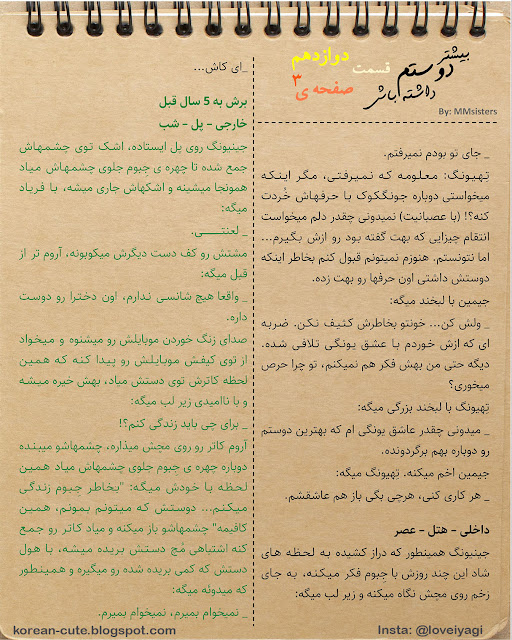 بیشتر دوستم داشته باش
قسمت دوازدهم
صفحه ی ۳
By: MMsisters
_ جای تو بودم نمیرفتم.
تِهیونگ: معلومه که نمیرفتی، مگر اینکه
میخواستی دوباره جونگکوک با حرفهاش خُردت
کنه؟! (با عصبانیت) نمیدونی چقدر دلم میخواست
انتقام چیزایی که بهت گفته بود رو ازش بگیرم...
اما نتونستم. هنوزم نمیتونم قبول کنم بخاطر اینکه
دوستش داشتی اون حرفها رو بهت زده.
جیمین با لبخند میگه:
_ ولش کن... خونتو بخاطرش کثیف نکن. ضربه
ای که ازش خوردم با عشق یونگی تلافی شده.
دیگه حتی من بهش فکر هم نمیکنم، تو چرا حرص
میخوری؟
تِهیونگ با لبخند بزرگی میگه:
_ میدونی چقدر عاشق یونگی ام که بهترین دوستم
رو دوباره بهم برگردونده.
جیمین اخم میکنه. تِهیونگ میگه:
_ هر کاری کنی، هرچی بگی باز هم عاشقشم.
داخلی - هتل - عصر
جینیونگ همینطور که دراز کشیده به لحظه های
شاد این چند روزش با جِبوم فکر میکنه، به جای
زخم روی مچش نگاه میکنه و زیر لب میگه:
_ای کاش...
برش به 5 سال قبل
خارجی - پل - شب
جینیونگ روی پل ایستاده، اشک توی چشمهاش
جمع شده تا چهره ی جِبوم جلوی چشمهاش میاد
همونجا میشینه و اشکهاش جاری میشه، با فریاد
میگه:
_ لعنتـــــی.
مشتش رو کف دست دیگرش میکوبونه، آروم تر از
قبل میگه:
_ واقعا هیچ شانسی ندارم، اون دخترا رو دوست
داره.
صدای زنگ خوردن موبایلش رو میشنوه و میخواد
از توی کیفش موبایلش رو پیدا کنه که همین
لحظه کاترش توی دستش میاد، بهش خیره میشه
و با ناامیدی زیر لب میگه:
_ برای چی باید زندگی کنم؟!
آروم کاتر رو روی مچش میذاره، چشمهاشو میبنده
دوباره چهره ی جِبوم جلوی چشمهاش میاد همین
لحظه با خودش میگه: "بخاطر جِبوم زندگی
میکنم... دوستش که میتونم بمونم، همین
کافیمه" چشمهاشو باز میکنه و میاد کاتر رو جمع
کنه اشتباهی مُچ دستش بریده میشه، با هول
دستش که کمی بریده شده رو میگیره و همینطور
که میدونه میگه:
_ نمیخوام بمیرم، نمیخوام بمیرم.
korean-cute.blogspot.com
Insta: @loveiyagi